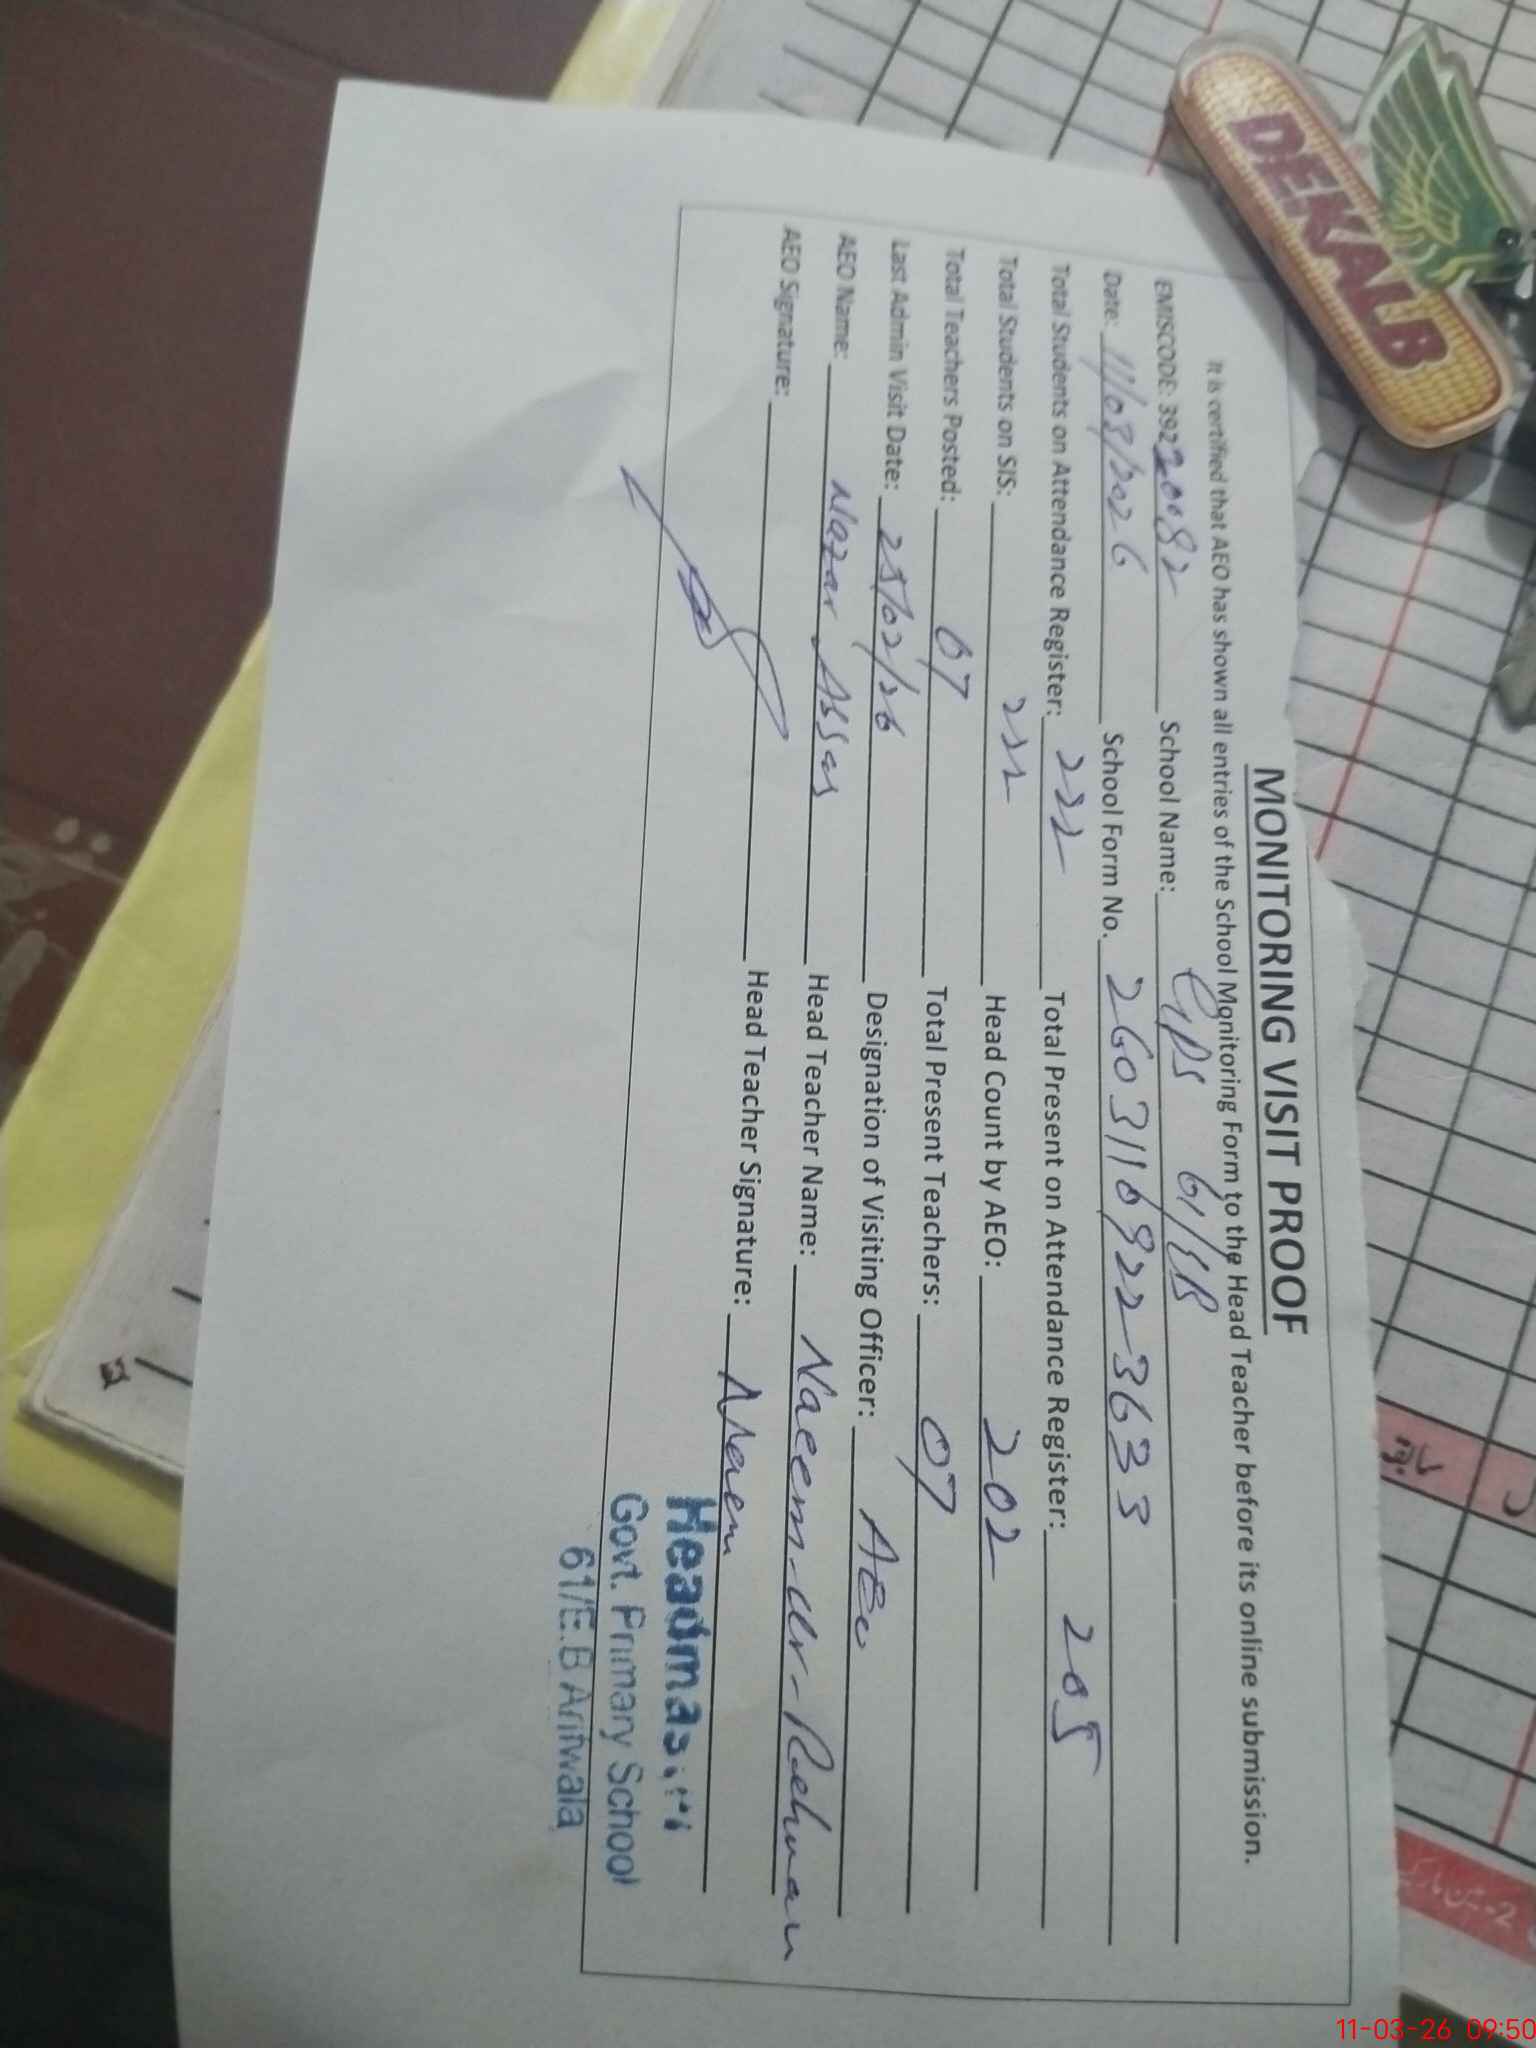 MONITORING VISIT PROOF
It is certified that AEO has shown all entries of the School Monitoring Form to the Head Teacher before its online submission.
EMISCODE: 39220082 School Name: GPS 61/EB
Date: 11/03/2026 School Form No. 26031109223633
Total Students on Attendance Register: 222 Total Present on Attendance Register: 205
Total Students on SIS: 222 Head Count by AEO: 202
Total Teachers Posted: 07 Total Present Teachers: 07
Last Admin Visit Date: 25/02/26 Designation of Visiting Officer: AEO
AEO Name: Nazar Head Teacher Name: Naeem-Ur-Rehman
AEO Signature: Head Teacher Signature: Naeem
Headmaster
Govt. Primary School
61/E.B Arifwala
DEKALB
11-03-26 09:50